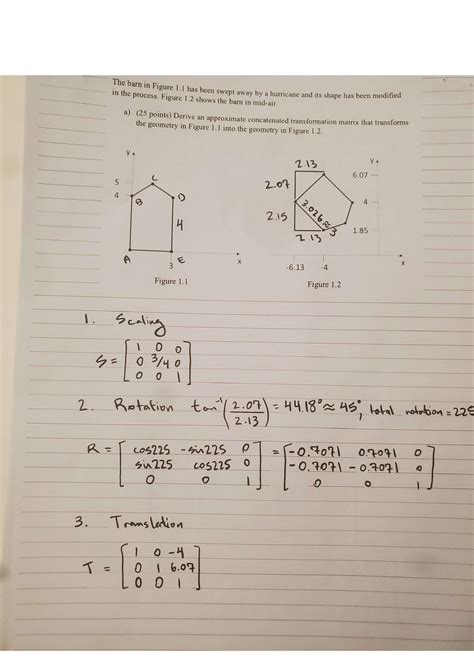 The barn in Figure 1.1 has been swept away by a hurricane and its shape has been modified
in the process. Figure 1.2 shows the barn in mid-air.
a) (25 points) Derive an approximate concatenated transformation matrix that transforms
the geometry in Figure 1.1 into the geometry in Figure 1.2.
y
5
4
C
B
D
4
A
3
E
x
Figure 1.1
2.13
y
2.07
6.07
2.15
3.026≈3
4
2.13
1.85
-6.13
-4
x
Figure 1.2
1. Scaling
S = [ 1 0 0
0 3/4 0
0 0 1 ]
2. Rotation tan⁻¹(2.07/2.13) = 44.18° ≈ 45°, total rotation = 225
R = [ cos225 -sin225 0 ] = [ -0.7071 0.7071 0 ]
[ sin225 cos225 0 ] [ -0.7071 -0.7071 0 ]
[ 0 0 1 ] [ 0 0 1 ]
3. Translation
T = [ 1 0 -4
0 1 6.07
0 0 1 ]